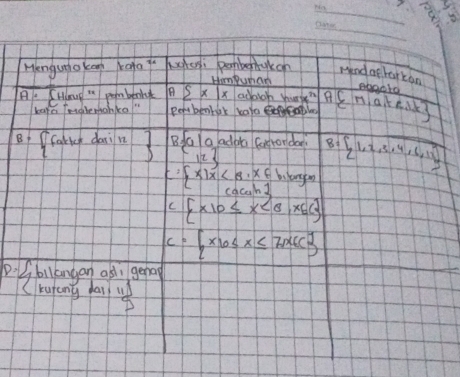 Mengunakan kata"
Notasi pembentukan
Himpunan
Mendaftarkan
anggota
A = {Huruf" pembentuk
kata "matematika"
A { x | x adalah huruf"
pembentuk kata
A { m, a, t, e, i, k }
B = { faktor dari 12 }
B {a | a adalah faktor dari
12 }
B = { 1, 2, 3, 4, 6, 12 }
C = { x | x < 8, x ∈ bilangan
cacah }
C { x | 0 ≤ x < 8, x ∈ C }
C = { x | 0 ≤ x ≤ 7, x ∈ C }
D = { bilangan asli genap
kurang dari 11 }